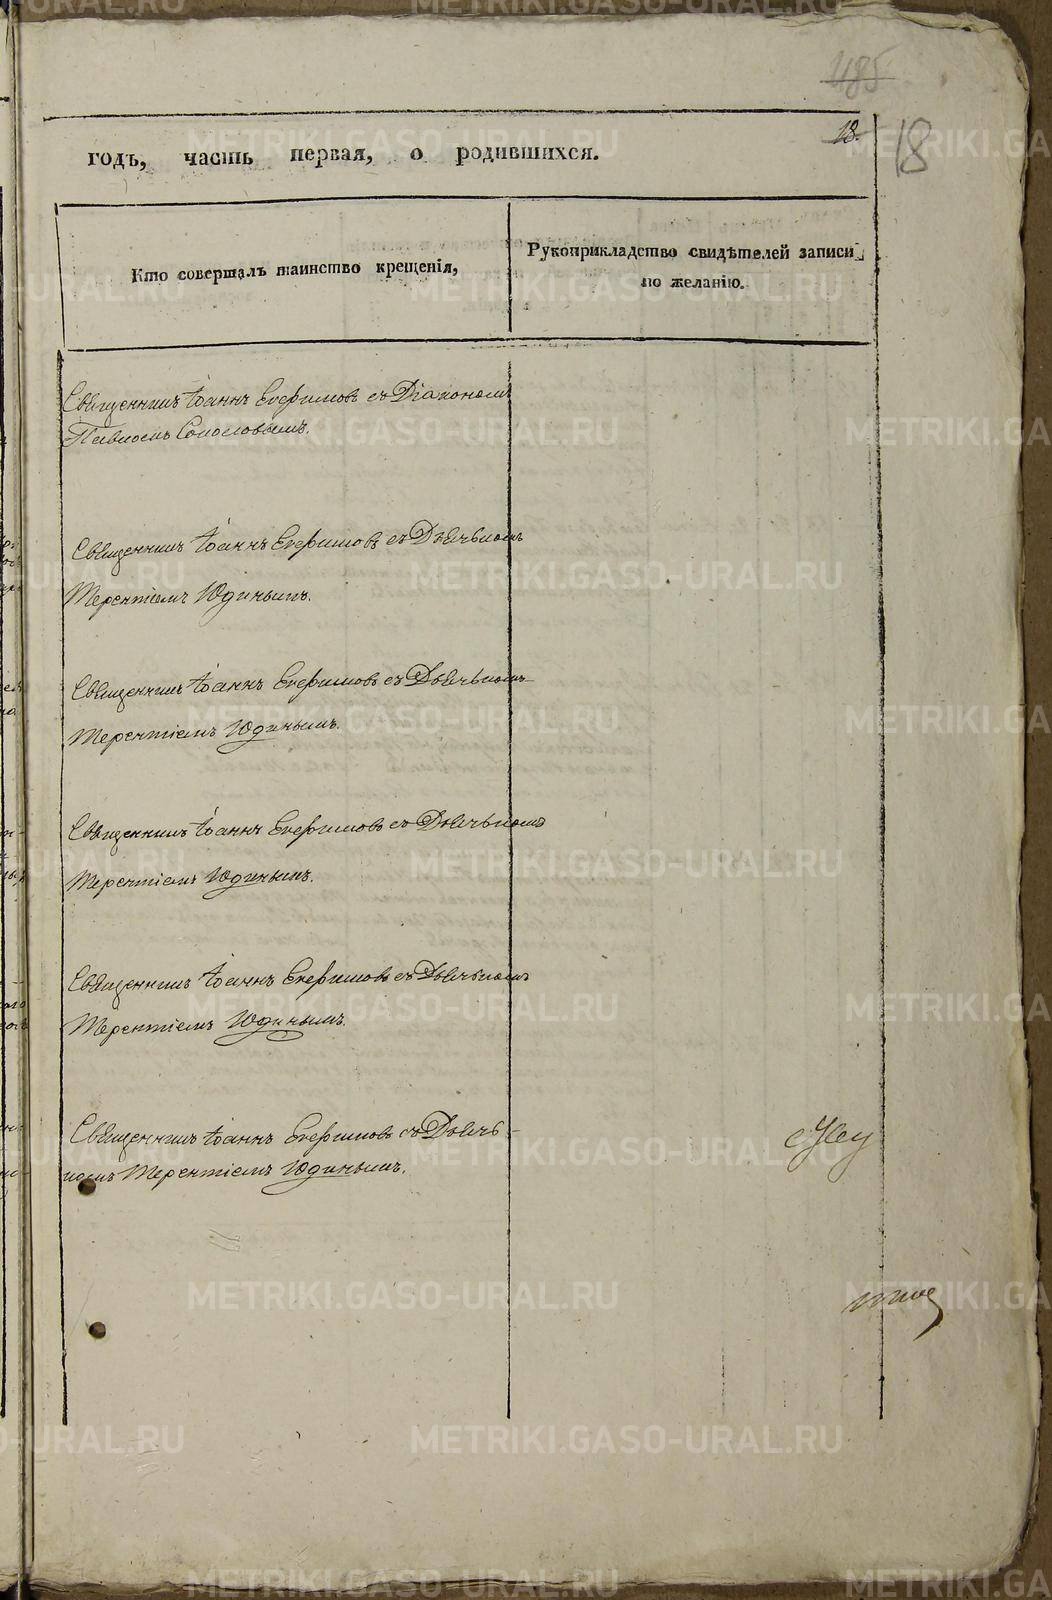 485
18.
18
годъ, часть первая, о родившихся.
Кто совершалъ таинство крещенія,
Рукоприкладство свидѣтелей записи по желанію.
Священникъ Іоаннъ Евфимовъ съ Діакономъ
Павломъ Соколовымъ.
Священникъ Іоаннъ Евфимовъ съ Дьячькомъ
Терентіемъ Юдинымъ.
Священникъ Іоаннъ Евфимовъ съ Дьячькомъ
Терентіемъ Юдинымъ.
Священникъ Іоаннъ Евфимовъ съ Дьячькомъ
Терентіемъ Юдинымъ.
Священникъ Іоаннъ Евфимовъ съ Дьячькомъ
Терентіемъ Юдинымъ.
Священникъ Іоаннъ Евфимовъ съ Дьячь-
комъ Терентіемъ Юдинымъ.
METRIKI.GASO-URAL.RU